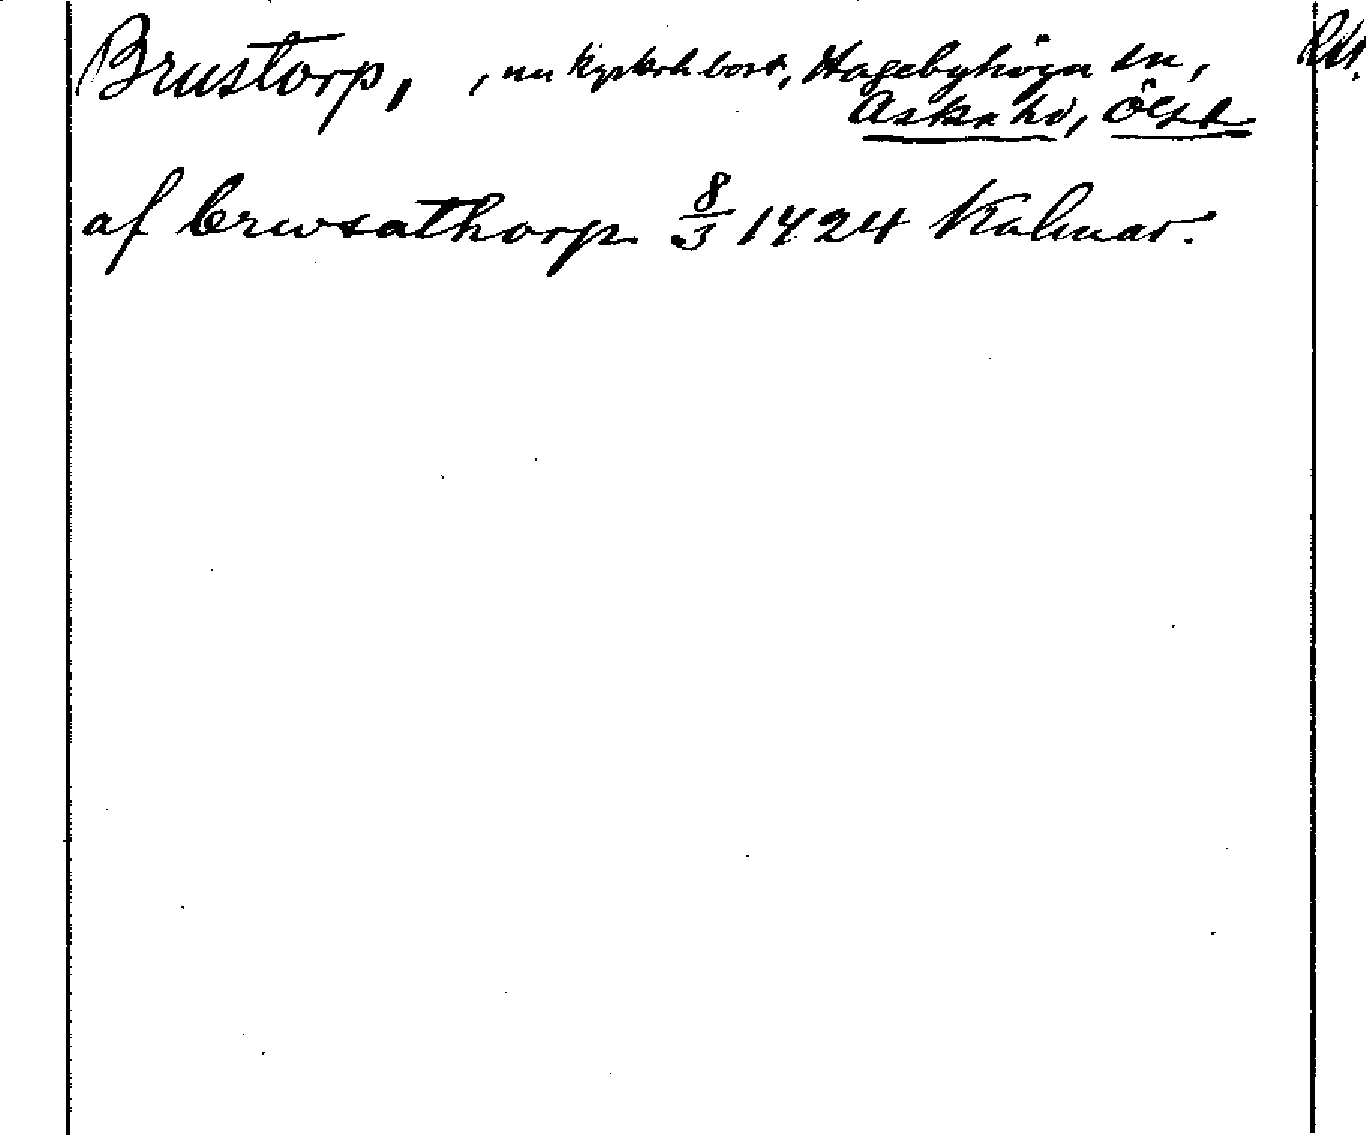 Brustorp, , nu kyrkohbost, Hagebyhöga sn, RA.
Aska hd, Ög
af brwsathorp 8/3 1424 Kalmar.